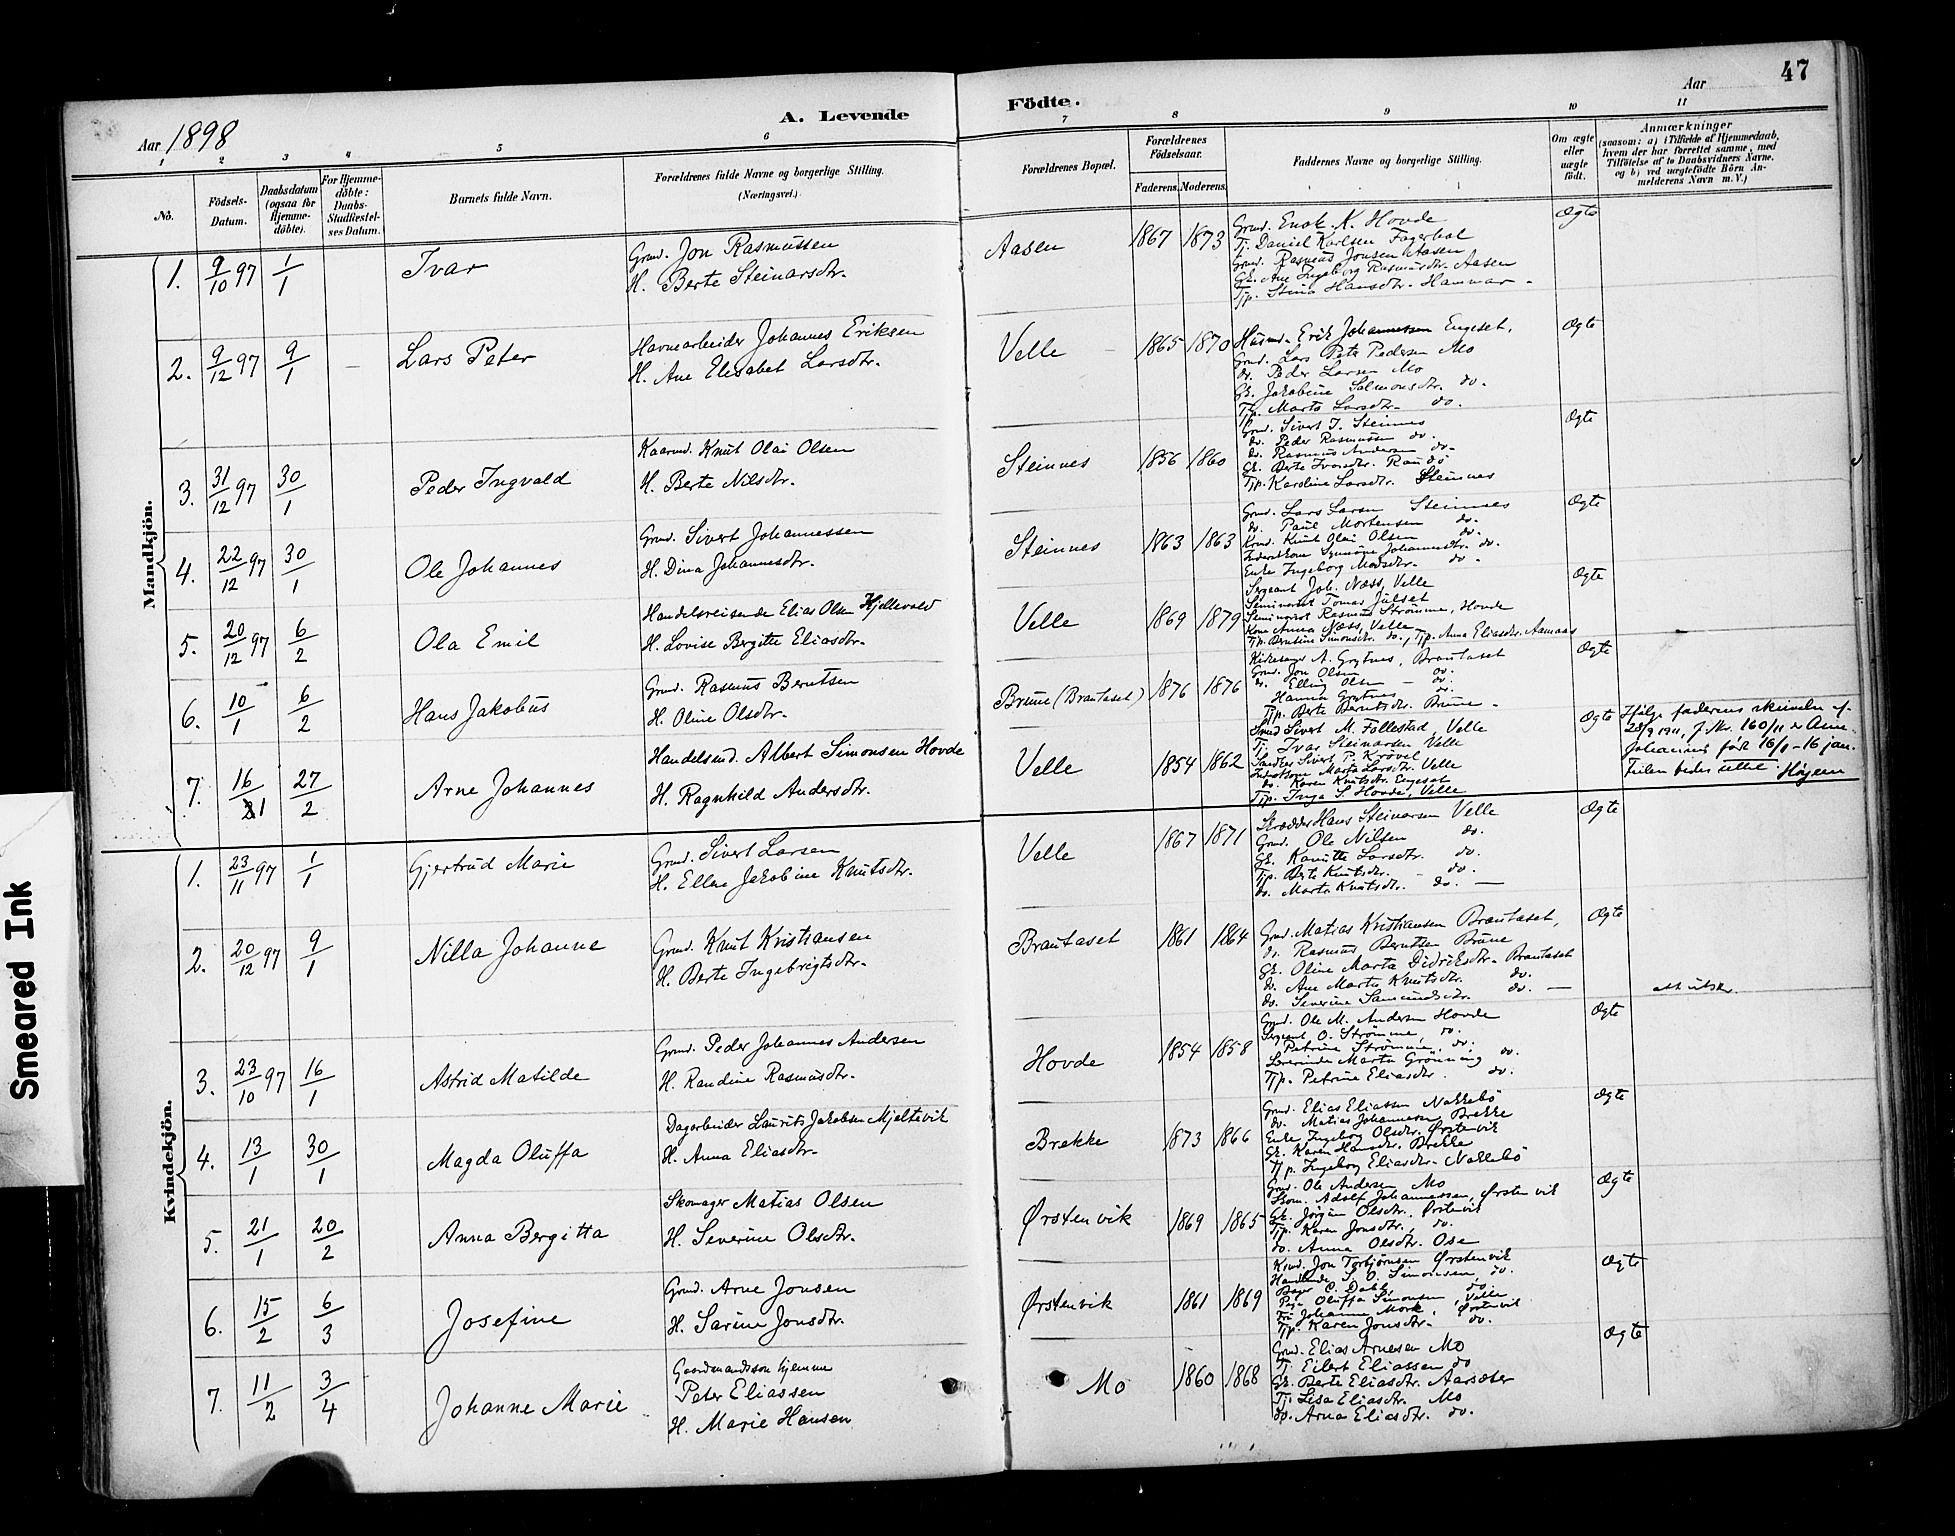 47
Aar 1898
A. Levende
Födte.
Aar
1 2 3 4 5 6 7 8 9 10 11
No.
Födsels-Datum.
Daabsdatum (ogsaa for Hjemme-döbte).
For Hjemme-döbte: Daabs-Stadfæstel-ses Datum.
Barnets fulde Navn.
Forældrenes fulde Navne og borgerlige Stilling.
(Næringsvei.)
Forældrenes Bopæl.
Forældrenes Födselsaar.
Faderens. Moderens.
Faddernes Navne og borgerlige Stilling.
Om ægte eller uægte födt.
Anmærkninger
(saasom: a) i Tilfælde af Hjemmedaab,
hvem der har forrettet samme, med
Tilföielse af to Daabsvidners Navne.
og b) ved uægtefödte Börn An-
melderens Navn m. V.)
Mandkjön.
1. 9/10 97 1/1 Ivar
Grmd. Jon Rasmussen
H. Berte Steinarsdtr.
Aasen 1867 1873
Grmd. Enok K. Hovde
Tj. Daniel Karlsen Fagerhol
Grmd. Rasmus Jonsen Aasen
Gk. Ane Ingeborg Rasmusdtr. Aasen
Tjp. Stina Hansdtr. Hammar
Ægte
2. 9/12 97 9/1 Lars Peter
Havnearbeider Johannes Eriksen
H. Ane Elisabet Larsdtr.
Velle 1865 1870
Husmd. Erik Johannessen Engeset,
Grmd. Lars Peter Pedersen Mo
do. Peder Larsen Mo
Gk. Jakobine Salmonsdtr. do.
Tjp. Marta Larsdtr. do.
Ægte
3. 31/12 97 30/1 Peder Ingvald
Kaarmd. Knut Olai Olsen
H. Berte Nilsdtr.
Steinnes 1856 1860
Grmd. Sivert J. Steinnes
do. Peder Rasmussen do.
do. Rasmus Andersen do.
Gk. Berte Ivarsdtr. Raudö
Tjp. Karoline Larsdtr. Steinnes
Ægte
4. 22/12 97 30/1 Ole Johannes
Grmd. Sivert Johannessen
H. Dina Johannesdtr.
Steinnes 1863 1863
Grmd. Lars Larsen Steinnes
do. Paul Mortensen do.
Krmd. Knut Olai Olsen do.
Inderstkone Synnöve Johannesdtr. do.
Enke Ingeborg Madsdtr. do.
Ægte
5. 20/12 97 6/2 Ola Emil
Handelsreisende Elias Olsen Hjellevold
H. Lovise Bergitte Eliasdtr.
Velle 1869 1879
Sergeant Joh. Næss, Velle
Seminarist Tomas Julset
Seminarist Rasmus Strömme, Hovde
Kone Anna Næss, Velle
Tjp. Berntine Simonsdtr. do., Tjp. Anna Eliasdtr. Aamaas
Ægte
6. 10/1 6/2 Hans Jakobus
Grmd. Rasmus Berntsen
H. Oline Olsdtr.
Brune (Brautaset) 1876 1876
Kirkesanger A. Grytnes, Brautaset
Grmd. Jon Olsen do.
do. Elling Olsen do.
Hanna Grytnes do.
Tjp. Berte Berntsdtr. Brune
Ægte
7. 16/1 27/2 Arne Johannes
Handelsmd. Albert Simonsen Hovde
H. Ragnhild Andersdtr.
Velle 1854 1862
Smed Sivert M. Follestad, Velle
Tj. Ivar Steinarsen Velle
Sivert P. Krövel
Marta Larsdtr. Velle
do. Karen Knutsdtr. Engeset
Tjp. Inga S. Hovde, Velle
Ægte
Ifölge faderens skrivelse af
28/9 1911, j. Nr. 160/11 er Arne
Johannes født 16/1 - 16 jan.
Feilen bedes rettet. Höyem
Kvindekjön.
1. 23/11 97 1/1 Gjertrud Marie
Grmd. Sivert Larsen
H. Ellen Jakobine Knutsdtr.
Velle 1867 1871
Skrædder Hans Steinarsen Velle
Grmd. Ole Nilsen do.
Gk. Kanutte Larsdtr. do.
Tjp. Berte Knutsdtr. do.
do. Marta Knutsdtr. do.
Ægte
2. 20/12 97 9/1 Nilla Johanne
Grmd. Knut Kristiansen
H. Berte Ingebrigtsdtr.
Brautaset 1861 1864
Grmd. Matias Kristiansen Brautaset,
do. Rasmus Berntsen Brune
Gk. Oline Marta Didriksdtr. Brautaset
do. Ane Marta Knutsdtr. do.
do. Severine Samundsdtr. do.
Ægte
3. 23/10 97 16/1 Astrid Matilde
Grmd. Peder Johannes Andersen
H. Randine Rasmusdtr.
Hovde 1854 1858
Grmd. Ole M. Andersen Hovde
Sergeant O. Strömme, do.
Petrine Strömme, do.
Lærerinde Marta Grönning do.
Tjp. Petrine Eliasdtr. do.
Ægte
4. 13/1 30/1 Magda Oluffa
Dagarbeider Laurits Jakobsen Mjeltevik
H. Anna Eliasdtr.
Brekke 1873 1866
Grmd. Elias Eliassen Nakkebö
do. Matias Johannessen Brekke
Enke Ingeborg Olsdtr. Ørstenvik
Gk. Karen Hansdtr. Brekke
Tjp. Ingeborg Eliasdtr. Nakkebö
Ægte
5. 21/1 20/2 Anna Bergitta
Skomager Matias Olsen
H. Severine Olsdtr.
Ørstenvik 1869 1865
Grmd. Ole Andersen Mo
Skom. Adolf Johannessen, Ørstenvik
Gk. Jörgine Olsdtr. Ørstenvik
Tjp. Karen Jonsdtr. do.
do. Anna Olsdtr. Ose
Ægte
6. 15/2 6/3 Josefine
Grmd. Arne Jonsen
H. Sarine Jonsdtr.
Ørstenvik 1861 1869
Krmd. Jon Torbjörnsen Ørstenvik
Handlende S. O. Simonsen, do.
Bager C. Dahl, do.
Pige Oluffa Simonsen, Velle
Frk. Johanne Mork, Ørstenvik
Tjp. Karen Jonsdtr. do.
Ægte
7. 11/2 3/4 Johanne Marie
Gaardmandssön hjemme
Peter Eliassen
H. Marie Hansen
Mo 1860 1868
Grmd. Elias Arnesen Mo
Tj. Eilert Eliassen do
Gk. Berte Eliasdtr. Aarsæter
Tj. Lisa Eliasdtr. Mo
do. Arna Eliasdtr. do.
Ægte
Smeared Ink